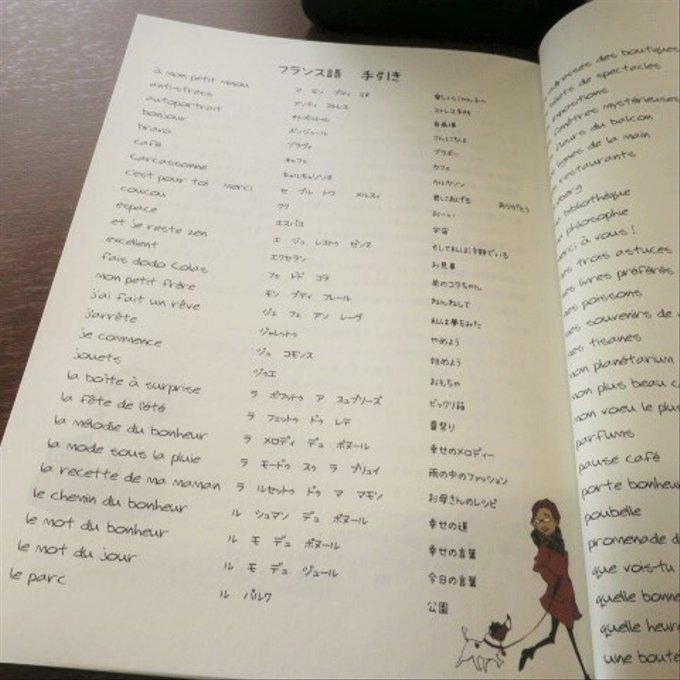 フランス語 手引き
à mon petit minou ア モン プティ ミヌ
anti-stress アンティ ストレス
autoportrait 自画像
bonjour ボンジュール こんにちは
bravo ブラヴォ ブラボー
café キャフェ カフェ
carcassonne キャルキャソンヌ カルカソンヌ
c'est pour toi merci セ プル トワ メルスィ 君にあげる ありがとう
coucou クク おーい
espace エスパス 宇宙
et je reste zen エ ジュ レストゥ ゼンヌ そして私は冷静でいる
excellent エクセラン お見事
fais dodo Colas フェ ドド コラ
mon petit frère モン プティ フレール 弟のコラちゃん ねんねして
j'ai fait un rêve ジェ フェ アン レーヴ 私は夢をみた
j'arrête ジャレットゥ やめよう
je commence ジュ コモンス 始めよう
jouets ジゥエ おもちゃ
la boîte à surprise ラ ボワットゥ ア スュプリーズ ビックリ箱
la fête de l'été ラ フェットゥ ドゥ レテ 夏祭り
la mélodie du bonheur ラ メロディ デュ ボヌール 幸せのメロディー
la mode sous la pluie ラ モードゥ スゥ ラ プリュイ 雨の中のファッション
la recette de ma maman ラ ルセットゥ ドゥ マ ママン お母さんのレシピ
le chemin du bonheur ル シュマン デュ ボヌール 幸せの道
le mot du bonheur ル モ デュ ボヌール 幸せの言葉
le mot du jour ル モ デュ ジュール 今日の言葉
le parc ル パルク 公園
adresses des boutiques
billets de spectacles
expositions
fenêtres mystérieuses
fleurs du balcon
lignes de la main
restaurants
bibliothèque
philosophie
merci à vous!
mes trois astuces
mes livres préférés
mes poissons
mes souvenirs de
mes tisanes
mon planétarium
mon plus beau
mon voeu le plus
parfums
pause café
porte bonheur
poubelle
promenade
que vois-tu
quelle bonne
quelle heure
une boute